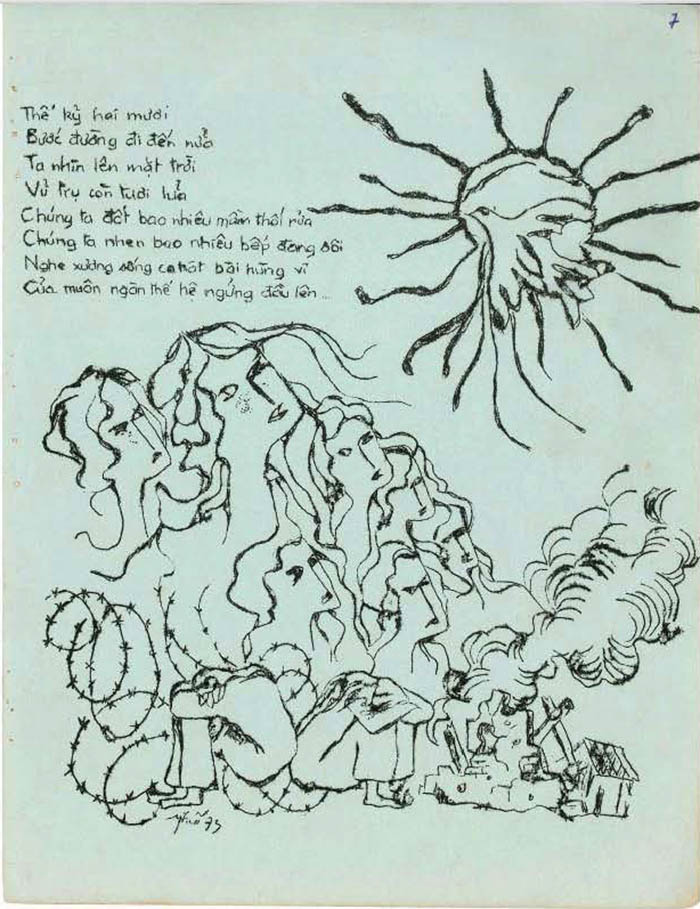 7
Thế kỷ hai mươi
Bước đường đi đến nửa
Ta nhìn lên mặt trời
Vũ trụ còn tươi lửa
Chúng ta đốt bao nhiêu mầm thối rữa
Chúng ta nhen bao nhiêu bếp đang sôi
Nghe xương sống ca hát bài hùng vĩ
Của muôn ngàn thế hệ ngửng đầu lên...
73